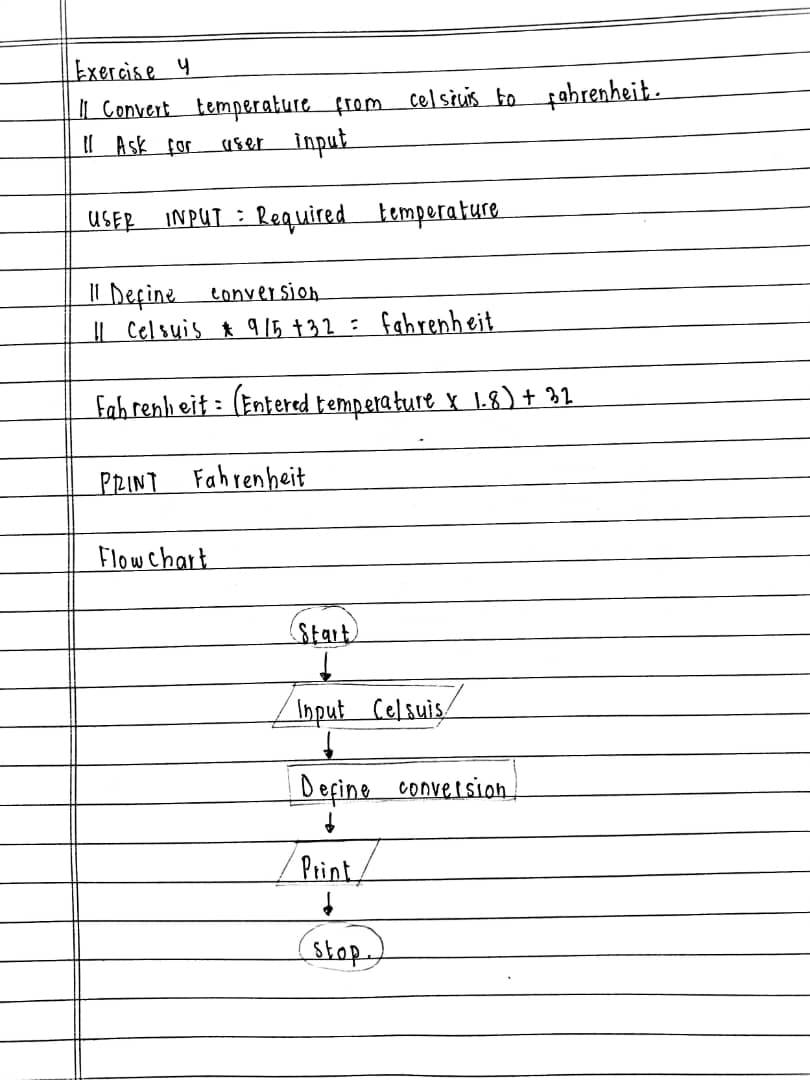 Exercise 4
// Convert temperature from celsiuis to fahrenheit.
// Ask for user input
USER INPUT = Required temperature
// Define conversion
// Celsuis * 9/5 + 32 = fahrenheit
Fahrenheit = (Entered temperature x 1.8) + 32
PRINT Fahrenheit
Flowchart
Start
Input Celsuis
Define conversion
Print
Stop.